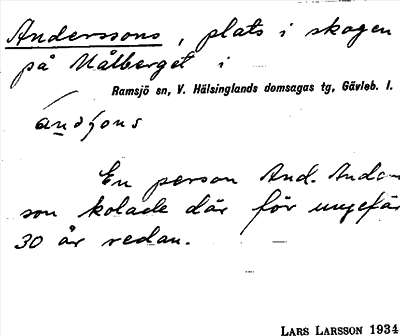 Anderssons, plats i skogen
på Målberget i
Ramsjö sn, V. Hälsinglands domsagas tg, Gävleb. l.
En person And. Anders-
son kolade där för ungefär
30 år sedan.
LARS LARSSON 1934